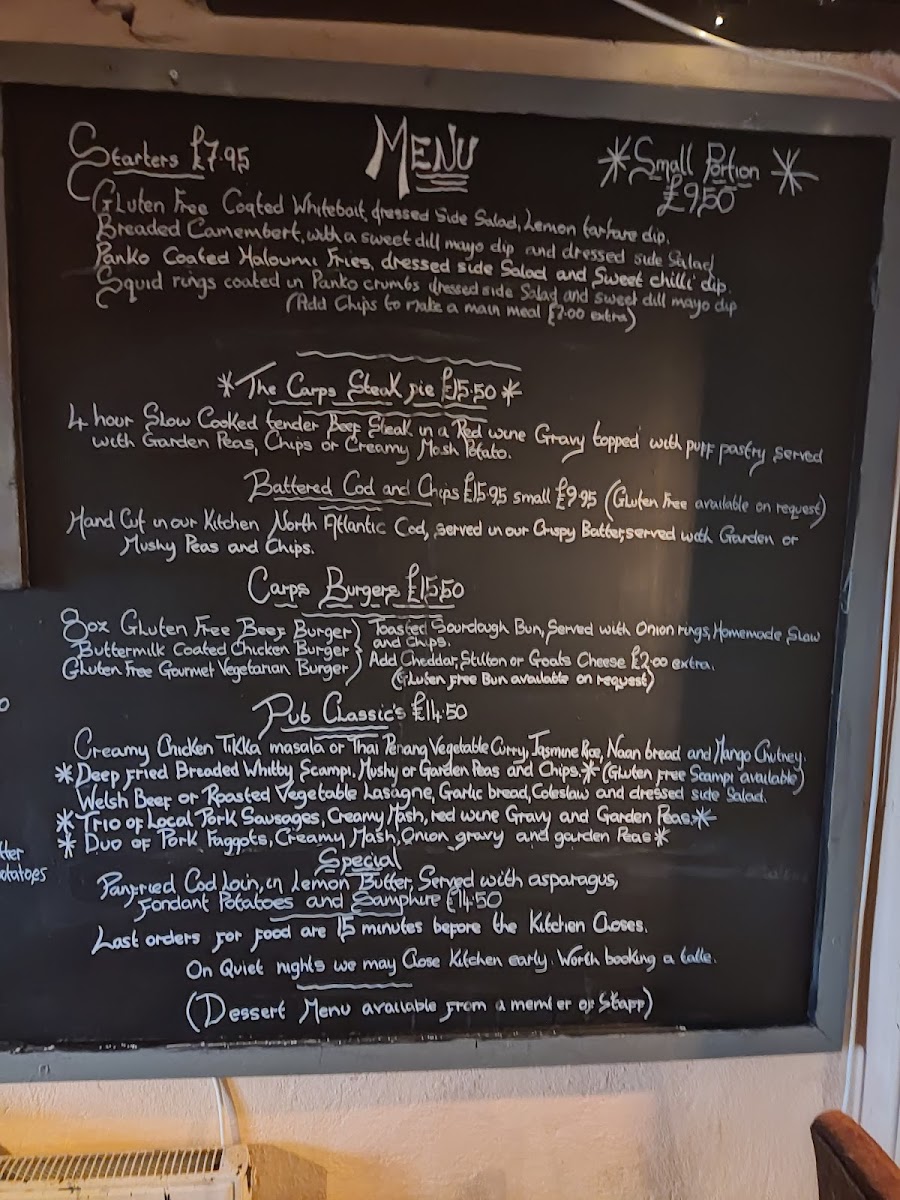 Starters £7.95
MENU
*Small Portion*
£9.50
Gluten Free Coated Whitebait, dressed Side Salad, Lemon tartare dip.
Breaded Camembert, with a sweet dill mayo dip and dressed side Salad
Panko Coated Haloumi Fries, dressed side Salad and Sweet chilli dip.
Squid rings coated in Panko crumbs dressed side Salad and sweet dill mayo dip
(Add Chips to make a main meal £7.00 extra)
*The Carps Steak pie £15.50*
4 hour Slow Cooked tender Beef Steak in a Red wine Gravy topped with puff pastry served
with Garden Peas, Chips or Creamy Mash Potato.
Battered Cod and Chips £15.95 small £9.95 (Gluten Free available on request)
Hand Cut in our Kitchen North Atlantic Cod, served in our Crispy Batter, served with Garden or
Mushy Peas and Chips.
Carps Burgers £15.50
8oz Gluten Free Beef Burger) Toasted Sourdough Bun, Served with Onion rings, Homemade Slaw
Buttermilk Coated Chicken Burger} and Chips.
Gluten Free Gourmet Vegetarian Burger) Add Cheddar, Stilton or Goats Cheese £2.00 extra.
(Gluten Free Bun available on request)
Pub Classic's £14.50
Creamy Chicken Tikka masala or Thai Penang Vegetable Curry, Jasmine Rice, Naan bread and Mango Chutney.
*Deep fried Breaded Whitby Scampi, Mushy or Garden Peas and Chips.* (Gluten Free Scampi available)
Welsh Beef or Roasted Vegetable Lasagne, Garlic bread, Coleslaw and dressed side Salad.
*Trio of Local Pork Sausages, Creamy Mash, red wine Gravy and Garden Peas.*
*Duo of Pork Faggots, Creamy Mash, Onion gravy and garden Peas*
Special
Panfried Cod Loin, in Lemon Butter, Served with asparagus,
Fondant Potatoes and Samphire £14.50
Last orders for food are 15 minutes before the Kitchen Closes.
On Quiet nights we may Close Kitchen early. Worth booking a table.
(Dessert Menu available from a member of Staff)